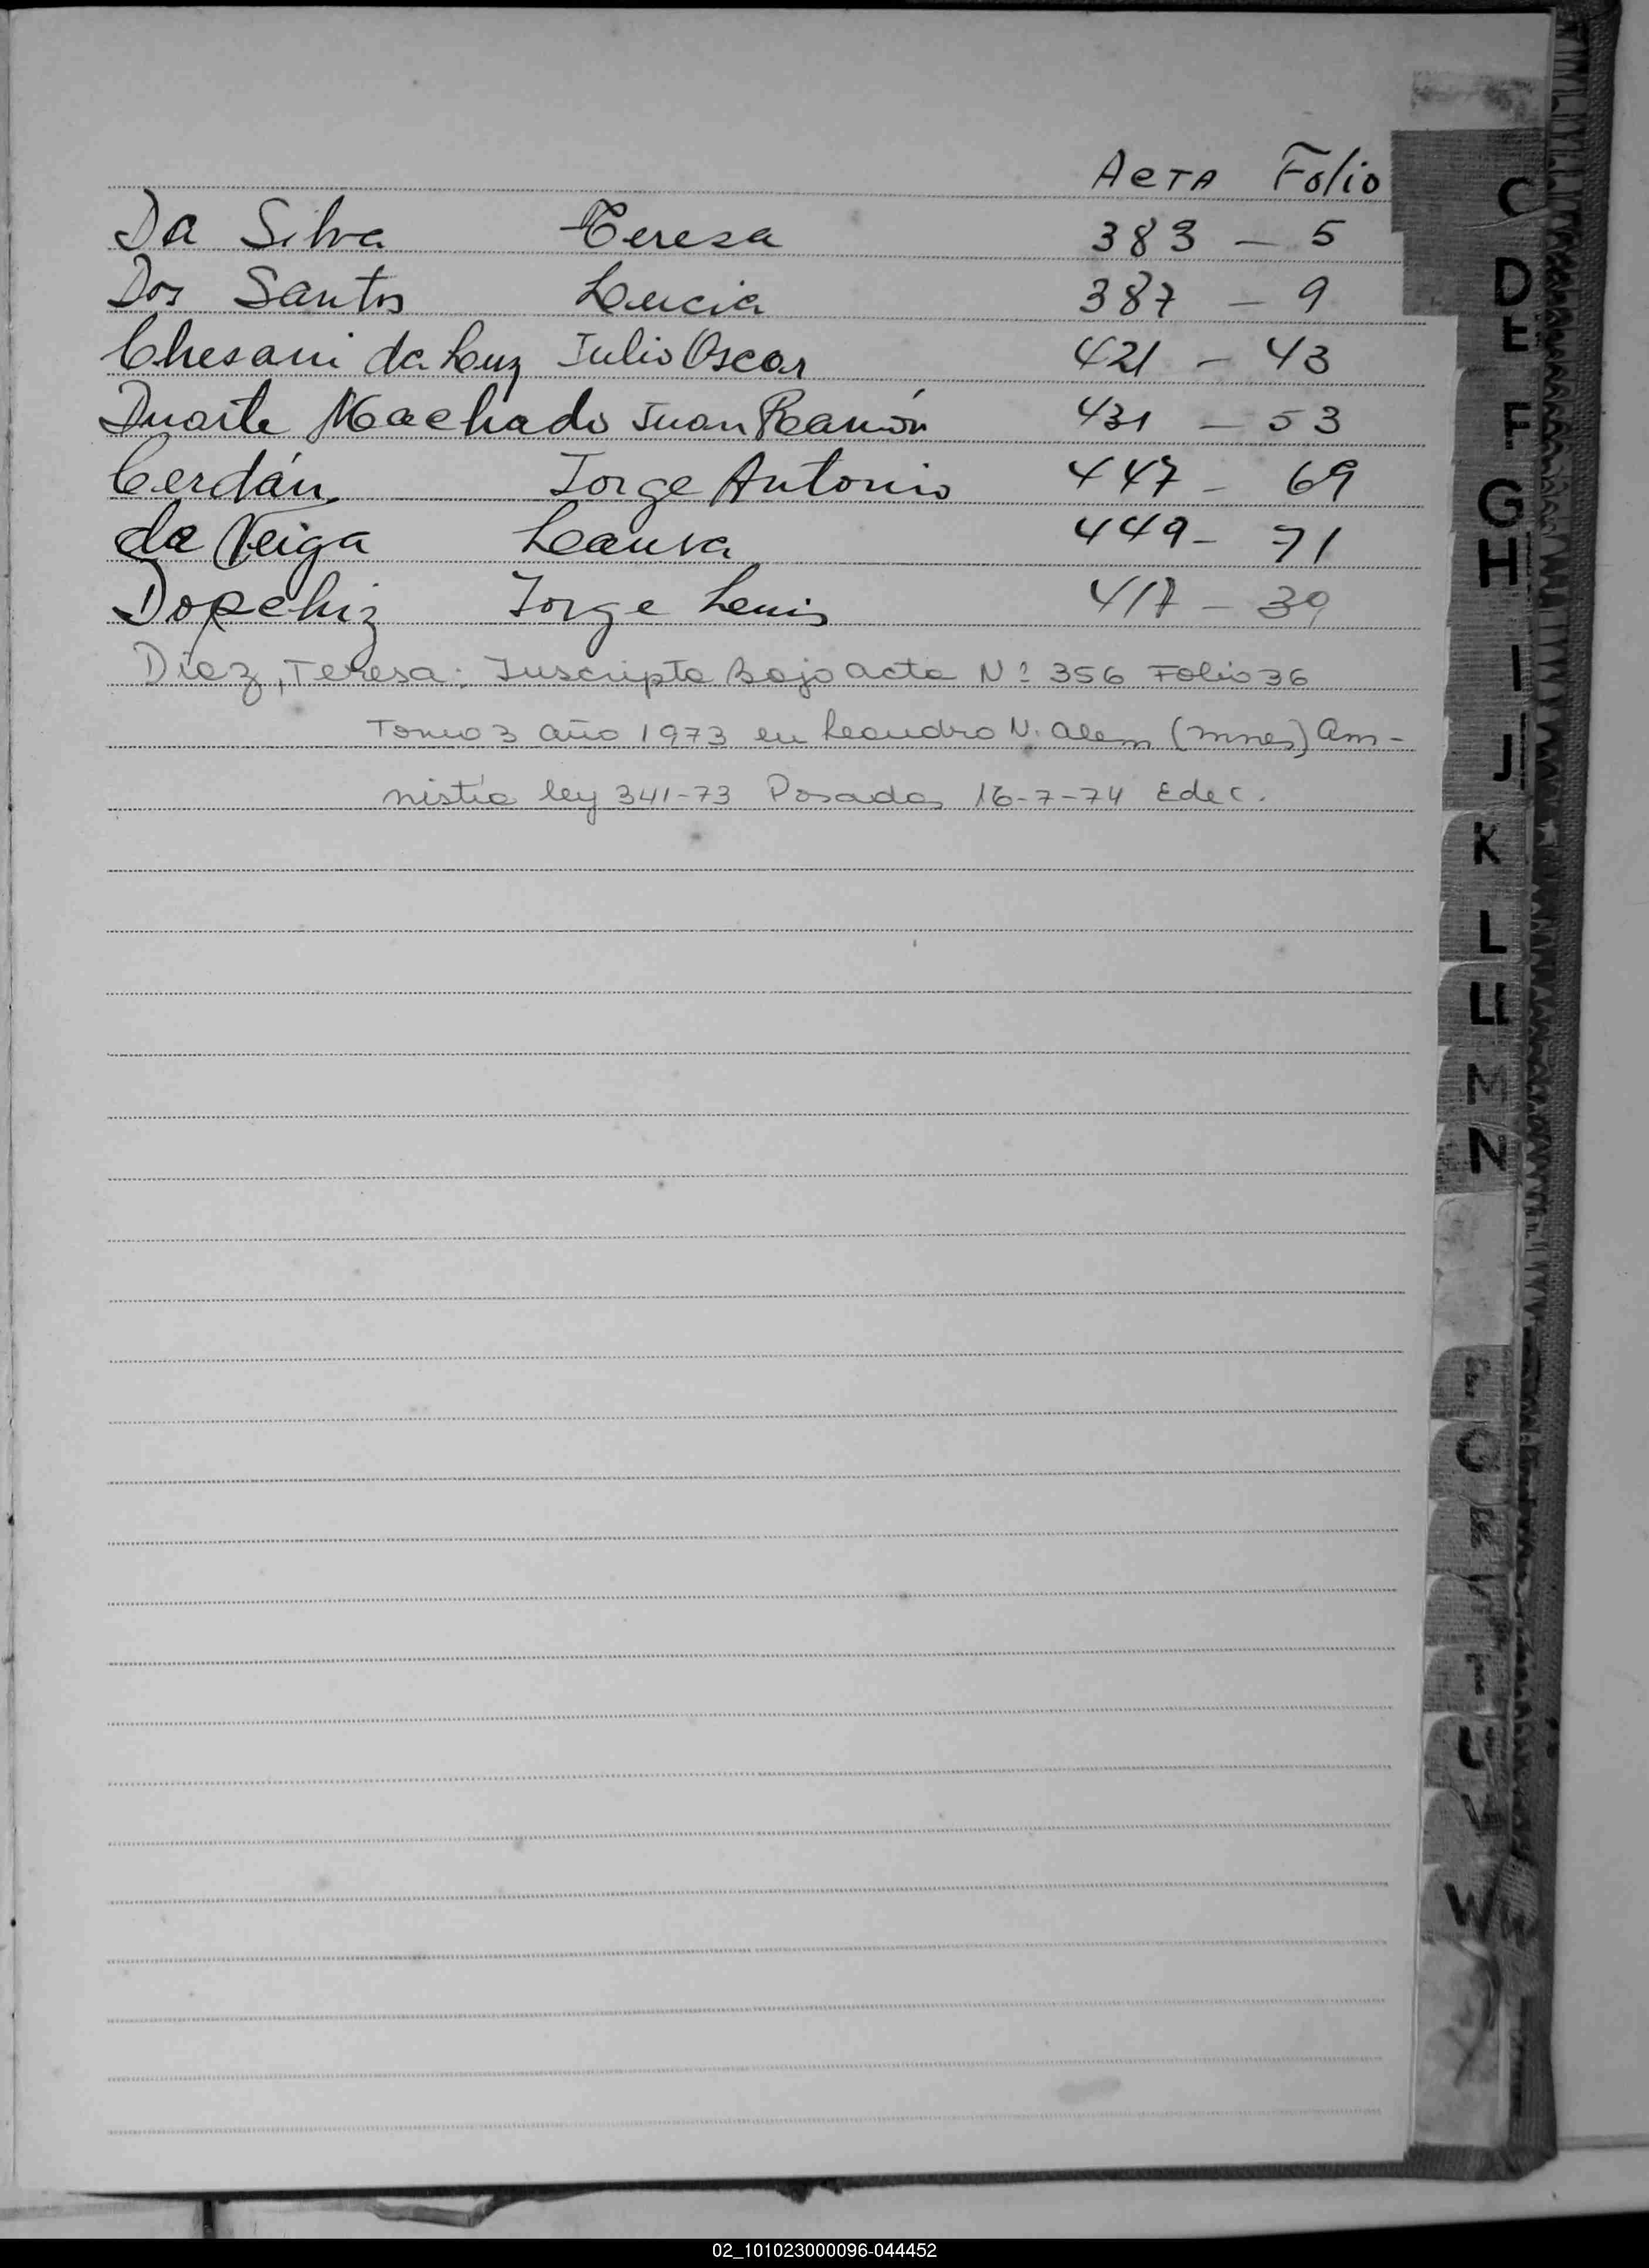 Acta Folio
Da Silva Teresa 383 - 5
Dos Santos Lucia 387 - 9
Chesani da Luz Julio Oscar 421 - 43
Duarte Machado Juan Ramón 431 - 53
Cerdán Jorge Antonio 447 - 69
da Veiga Laura 449 - 71
Dopchiz Jorge Luis 417 - 39
Diez, Teresa: Inscripta Bajo acta Nº 356 Folio 36
Tomo 3 año 1973 en Leandro N. Alem (mnes) Am-
nistía ley 341-73 Posadas 16-7-74
C
D
E
F
G
H
I
J
K
L
LL
M
N
T
U
V
W
02_101023000096-044452